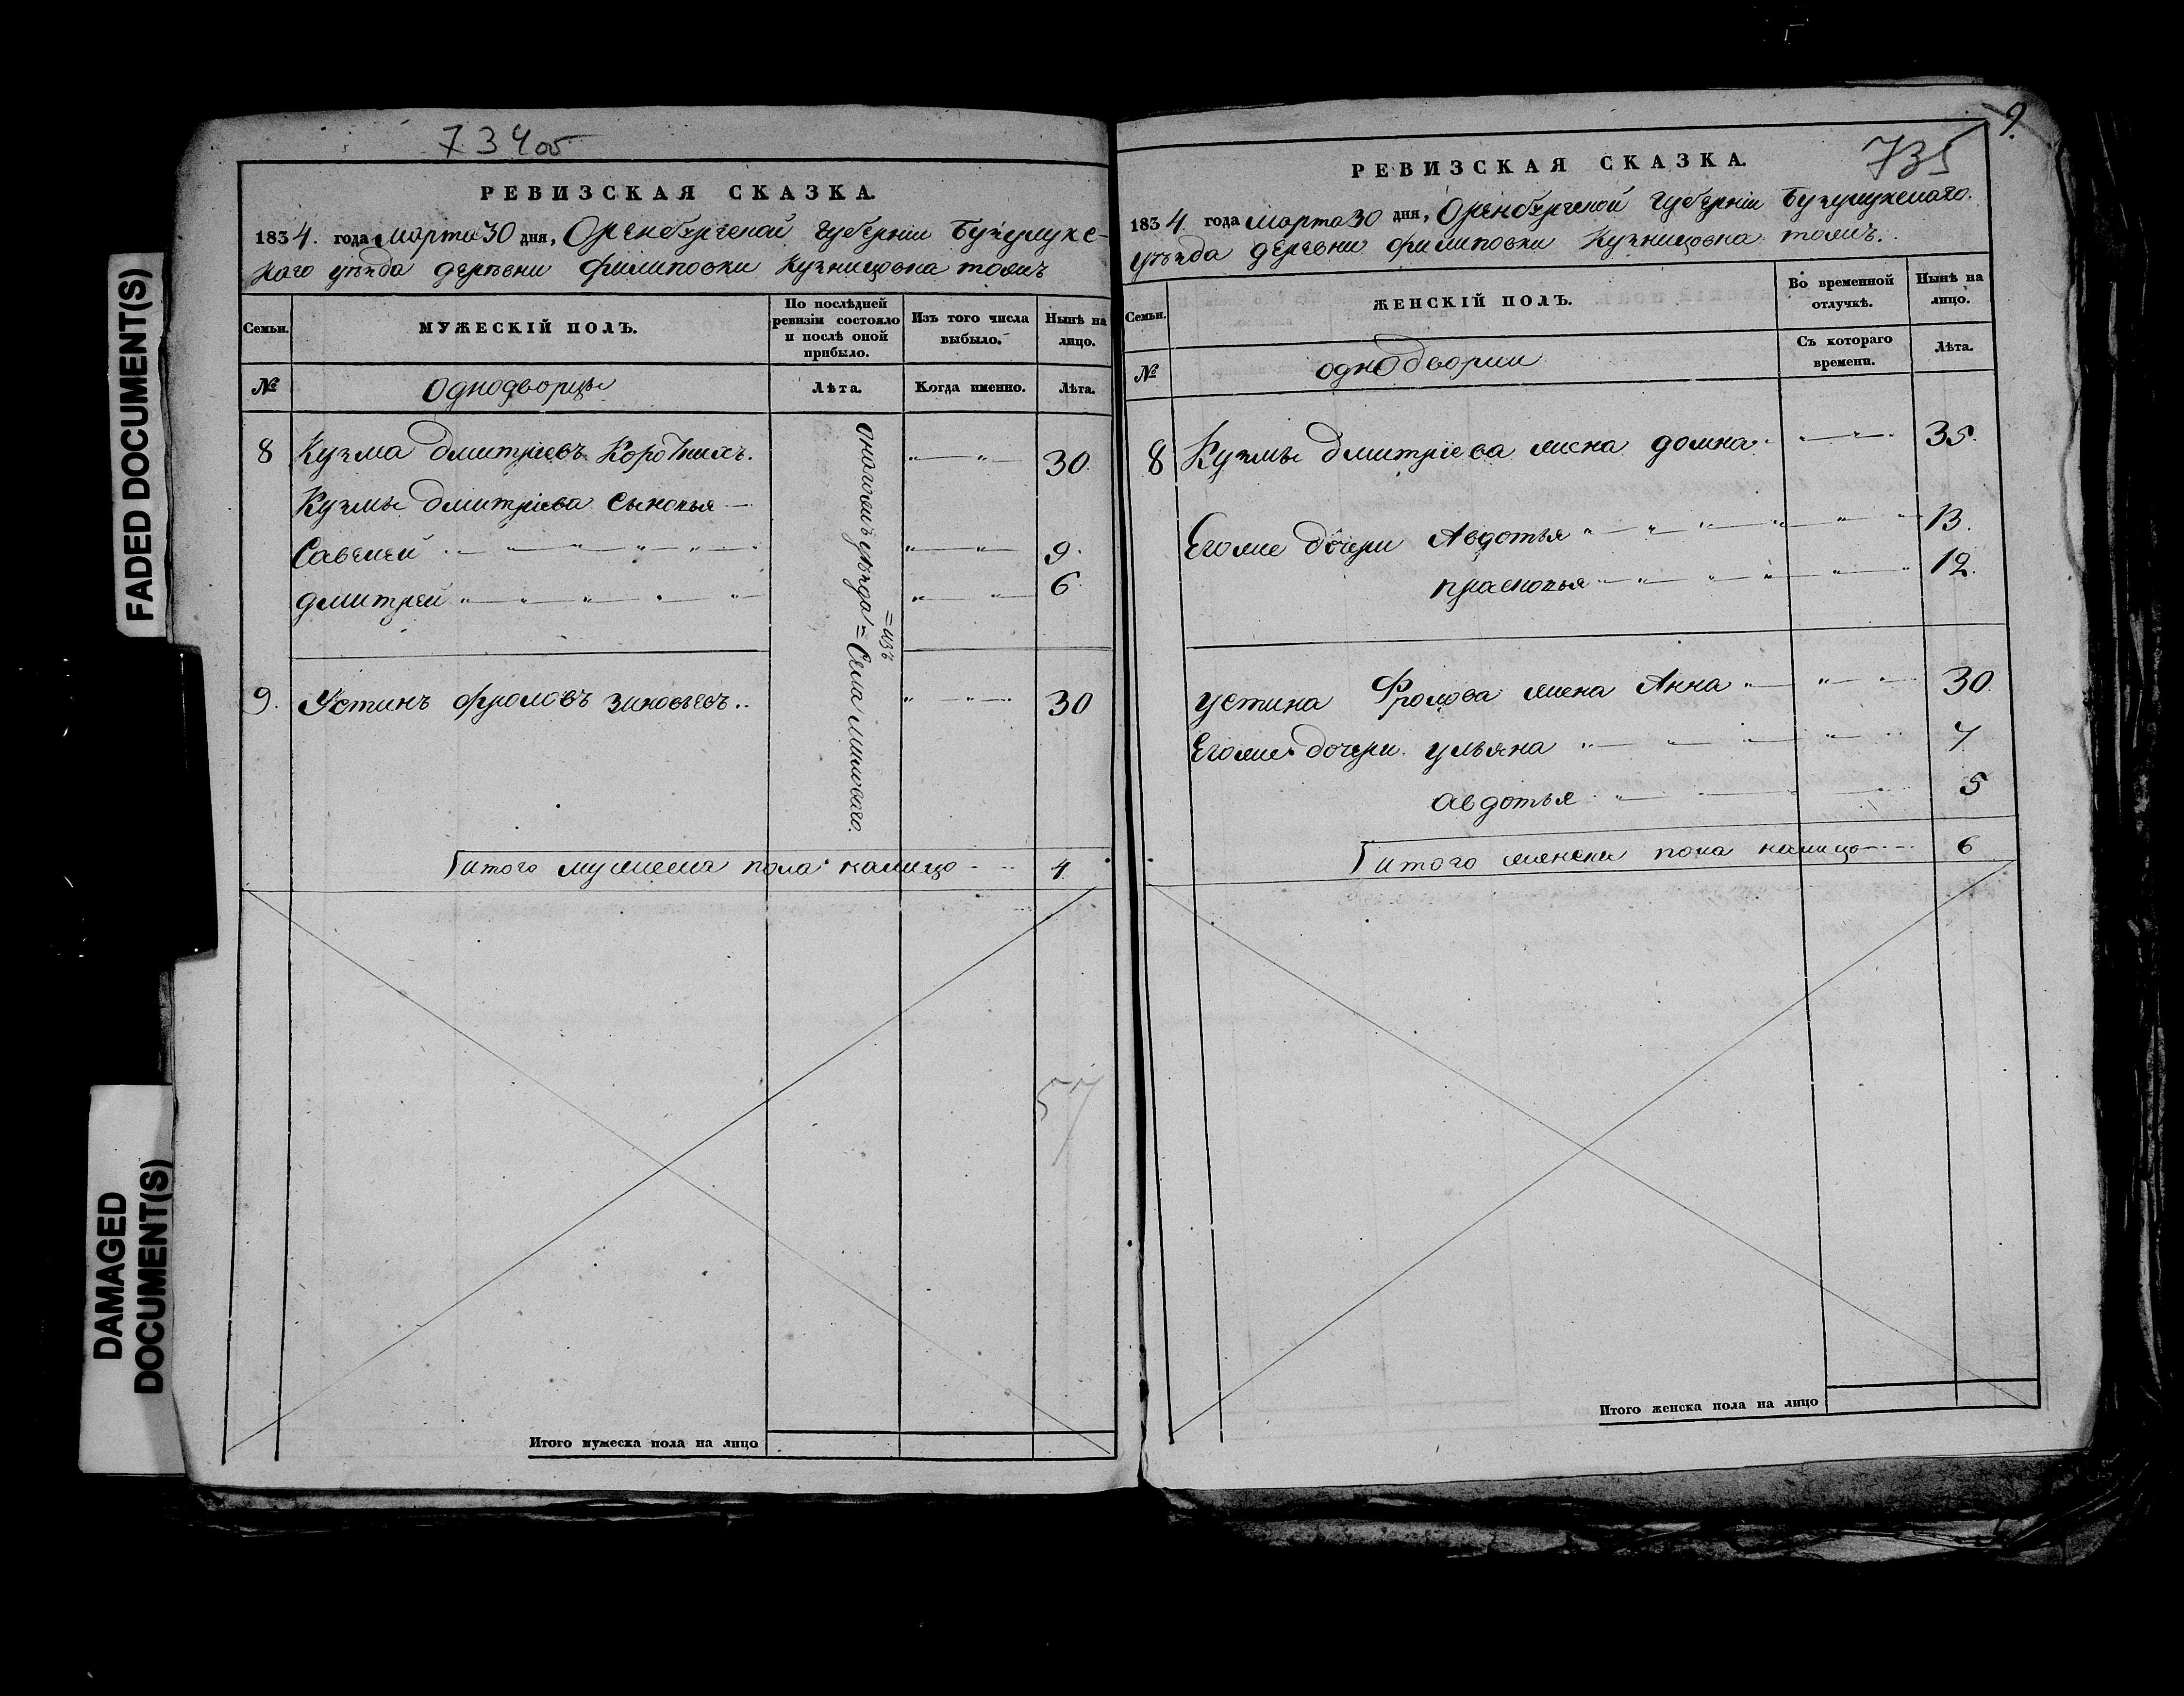 FADED DOCUMENT(S)
DAMAGED
DOCUMENT(S)
734 об
РЕВИЗСКАЯ СКАЗКА.
1834. года Марта 30 дня, Оренбургской губернии Бузулукс-
каго уѣзда деревни Филиповки Кузнецовка тожъ
Семьи.
МУЖЕСКІЙ ПОЛЪ.
По послѣдней
ревизіи состояло
и послѣ оной
прибыло.
Изъ того числа
выбыло.
Нынѣ на
лицо.
№
Однодворцы
Лѣта.
Когда именно.
Лѣта.
8 Кузма Дмитріевъ Короткихъ. 30
Кузмы Дмитріева сыновья
Савелей 9.
Дмитрей 6
9. Устинъ Фроловъ Зиновьевъ.. 30
уѣзда = Села
=изъ
итого мужеска пола налицо 4.
57
Итого мужеска пола на лицо
9.
735
РЕВИЗСКАЯ СКАЗКА.
1834. года Марта 30 дня, Оренбургской губерніи Бузулукскаго.
уѣзда деревни Филиповки Кузнецовка тожъ.
Семьи.
ЖЕНСКІЙ ПОЛЪ.
Во временной
отлучкѣ.
Нынѣ на
лицо.
№
однодворки
Съ котораго
времени.
Лѣта.
8 Кузмы Дмитріева жена домна 35.
Егоже дочери Авдотья 13.
прасковья 12.
устина Фролова жена Анна 30.
Егоже дочери ульяна 7
авдотья 5
итого женска пола налицо 6
Итого женска пола на лицо